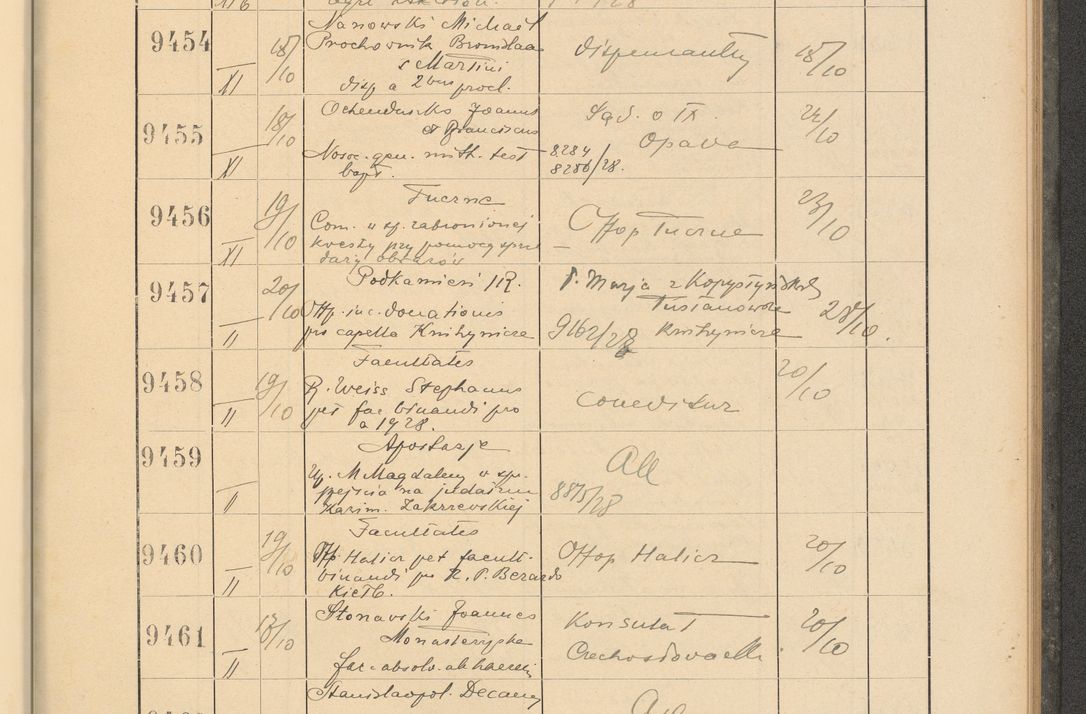 9454 XI 18/10
Nanowski Michaël
Prochownik Bronislaa
s Martini
disp a 2bus procl.
dispensantur 18/10
9455 XI 18/10
Joannes
st Franciscus
Nosoc. gen. mitt. test
bapt.
Sąd. o IX.
Opava
8284
8286/28.
24/10
9456 XI 19/10
Tuczne
Com. w sp. zabronionej
kwesty przy pomocy sprze
daży obrazów
Offop Tuczne 23/10
9457 II 20/10
Podkamień /R.
Offp. inc. donationis
pro capella Knihynicze
P. Marja z Kopystyńskich
Tustanowska
9162/28 Knihynicze
28/10.
9458 II 19/10
Facultates
R. Weiss Stephanus
pet fac binandi pro
a 1928.
conceditur
20/10
9459 II
Apostazje
Up. M Magdaleny w spr.
przejścia na judaizm
Kazim. Zakrzewskiej
All
8875/28
9460 II 19/10
Facultates
Offp Halicz pet facult.
binandi pro R. P. Berardo
Offop Halicz 20/10
9461 II 17/10
Stonawski Joannes
Monasterzyska
fac. absolv. ab haeresi
Konsulat
Czechosłovacki 20/10
Stanislaopol. Decany